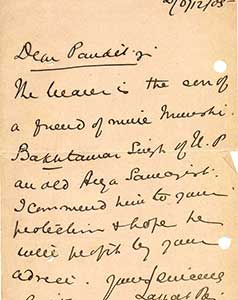 Dear Pandit ji
The bearer is the son
of a friend of mine Munshi
Bakhtawar Singh of U. P
an old Arya Samajist.
I commend him to your
protection & hope he
will profit by your
advice. Yours sincerely